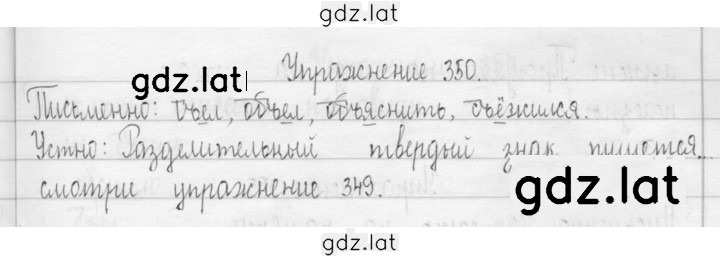 gdz.lat
Упражнение 350.
gdz.lat
Письменно: съел, объел, объяснить, съёжился.
Устно: Разделительный твердый знак пишется...
смотри упражнение 349.
gdz.lat
gdz.lat